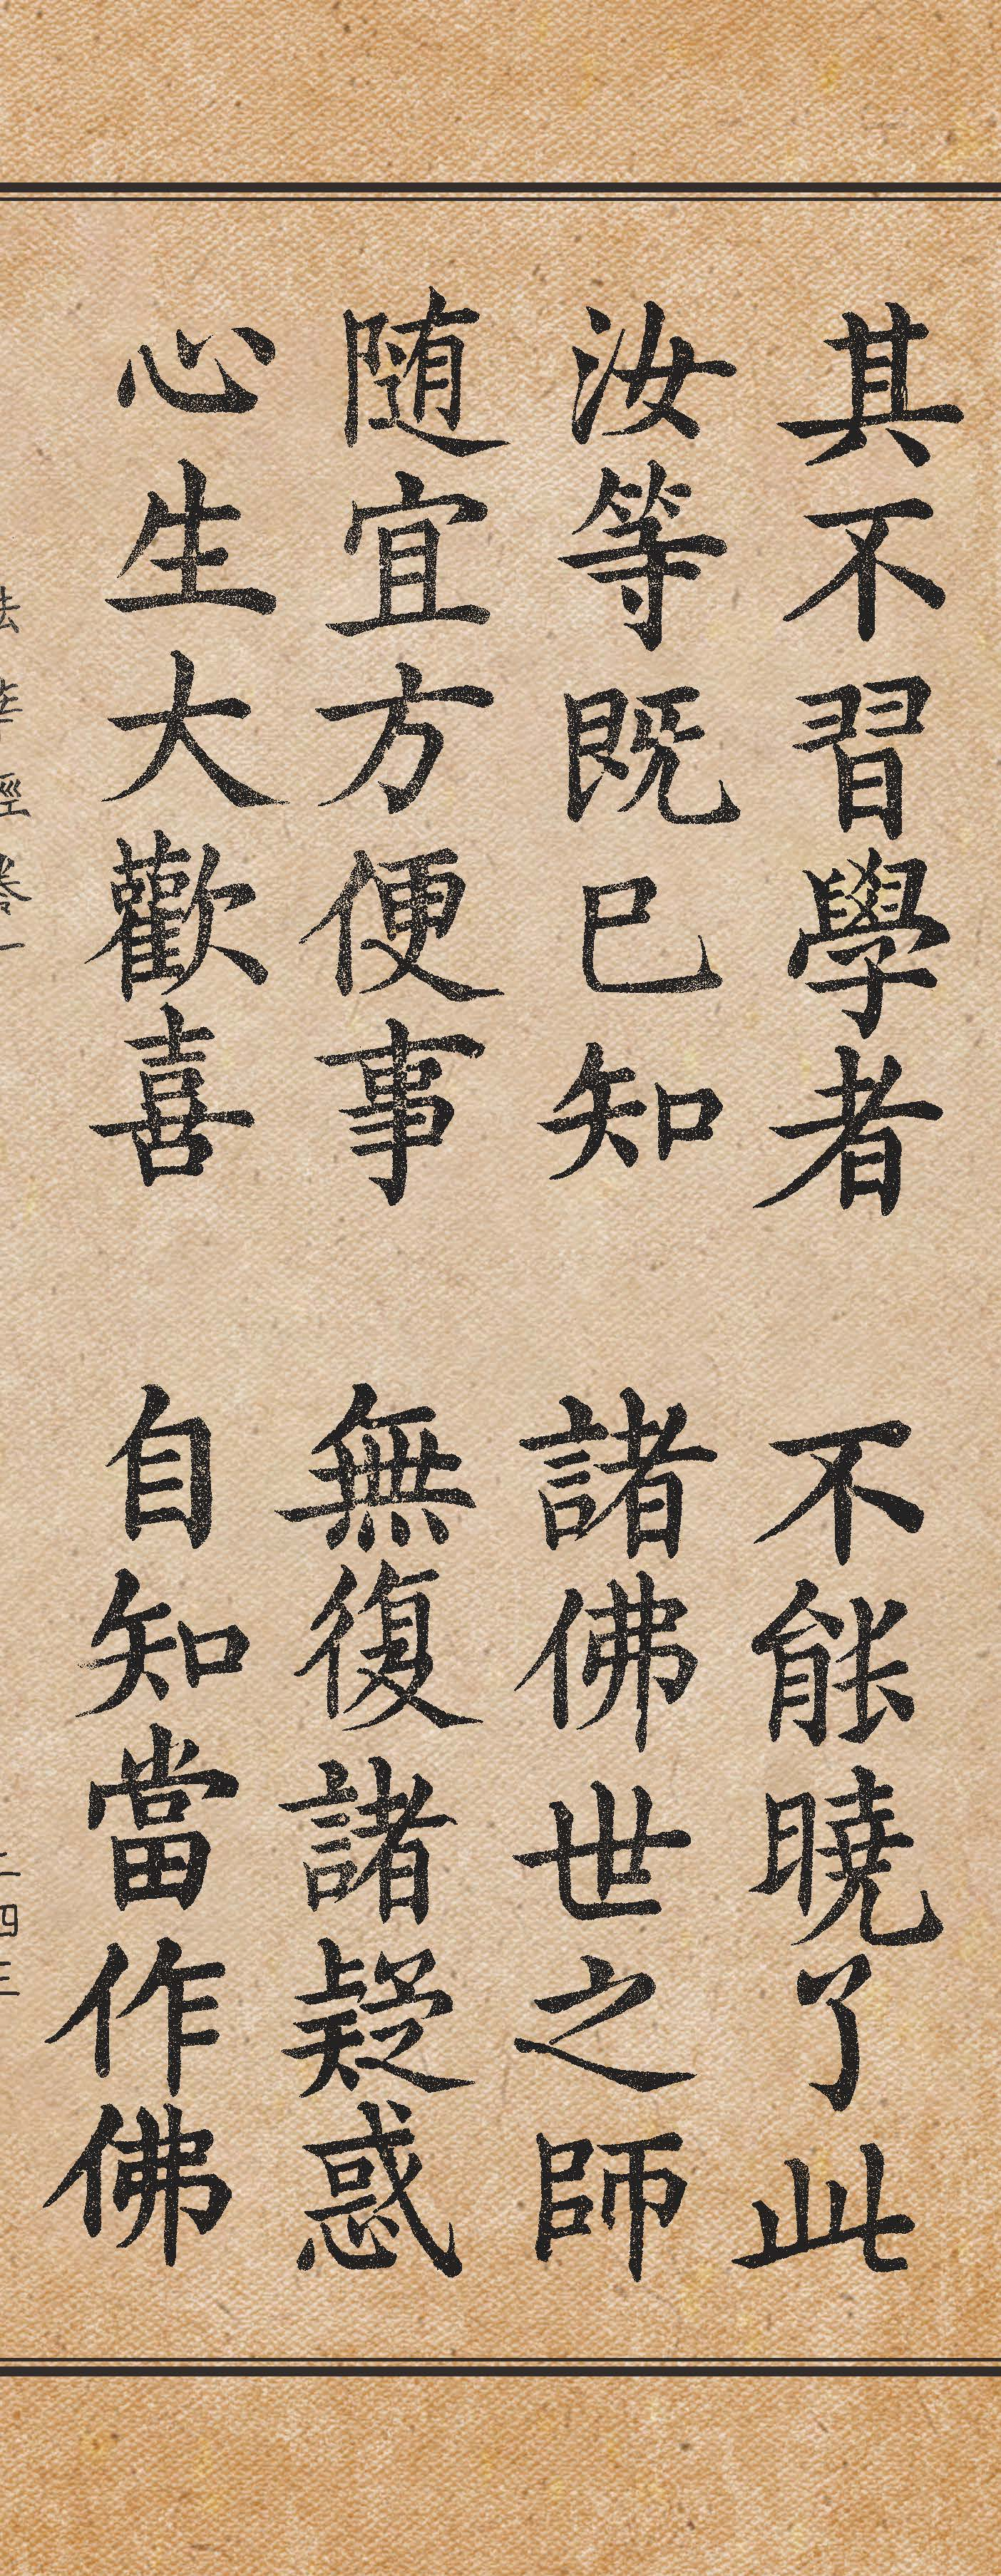 其不習學者　不能曉了此
汝等既已知　諸佛世之師
随宜方便事　無復諸疑惑
心生大歡喜　自知當作佛
法華經卷一　二四三